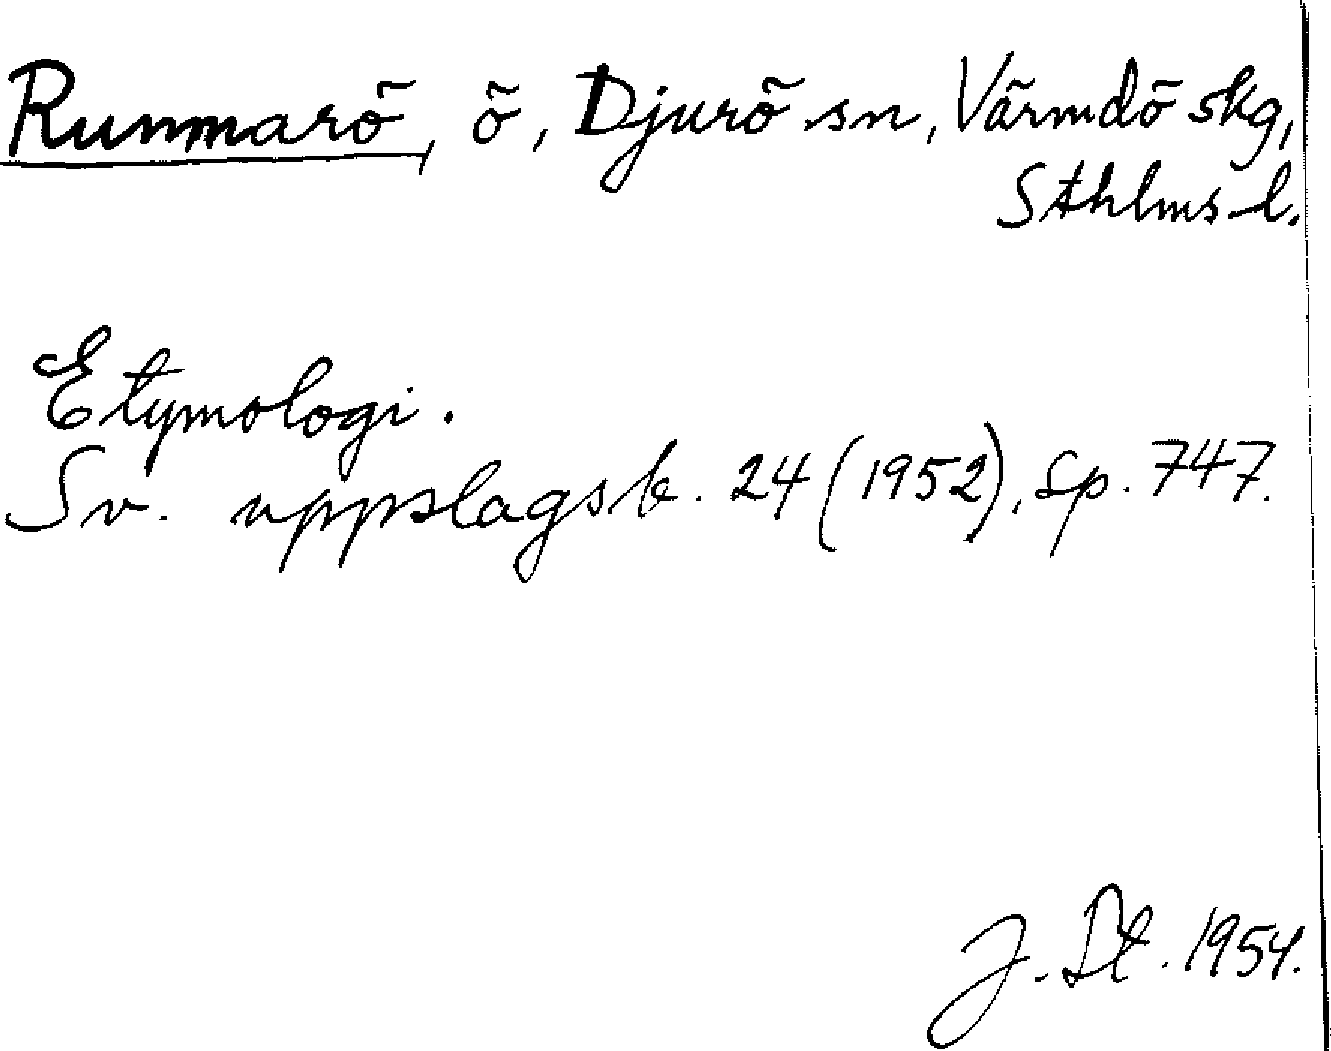 Runmarö, ö, Djurö sn, Värmdö skg,
Sthlms l.
Etymologi.
Sv. uppslagsb. 24 (1952), sp. 747.
J. Dt. 1954.